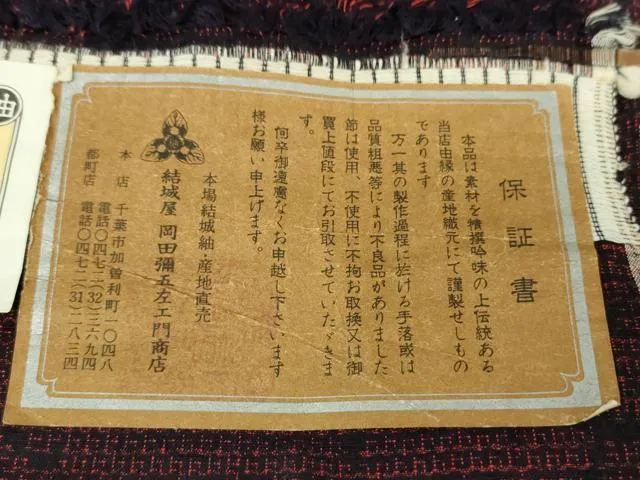 保証書
本品は素材を精撰吟味の上伝統ある
当店由縁の産地織元にて謹製せしもの
であります
万一其の製作過程に於ける手落或は
品質粗悪等により不良品がありました
節は使用、不使用に不拘お取換又は御
買上値段にてお引取させていたゞきま
す。
何卒御遠慮なくお申越し下さいます
様お願い申上げます。
本場結城紬・産地直売
結城屋 岡田彌五左エ門商店
本店 千葉市加曽利町一〇四八
電話〇四七二(32)三六九四
都町店 電話〇四七二(31)二八三四
紬